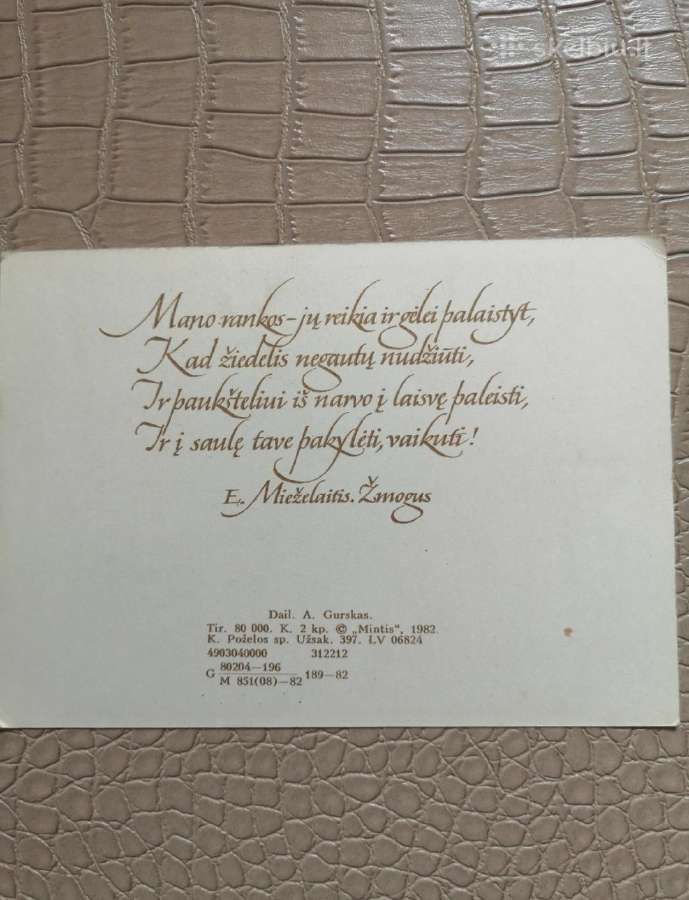 skelbiu.lt
Mano rankos – jų reikia ir gėlei palaistyt,
Kad žiedelis negautų nudžiūti,
Ir paukšteliui iš narvo į laisvę paleisti,
Ir į saulę tave pakylėti, vaikuti!
E. Mieželaitis. Žmogus
Dail. A. Gurskas.
Tir. 80 000. K. 2 kp. © „Mintis“, 1982.
K. Poželos sp. Užsak. 397. LV 06824
4903040000 312212
G 80204—196
M 851(08)—82 189—82